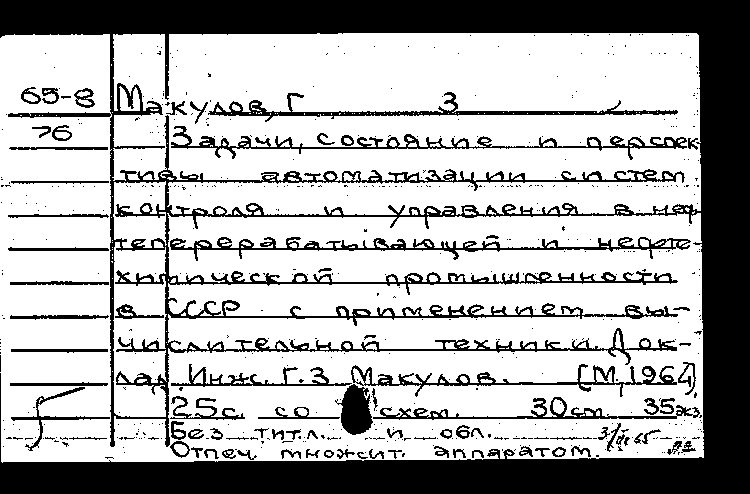 65-8 Макулов, Г З
76 Задачи, состояние и перспек
тивы автоматизации систем
контроля и управления в неф
теперерабатывающей и нефте-
химической промышленности
в СССР с применением вы-
числительной техники. Док-
лад. Инж. Г. З Макулов. [М, 1964]
25с. со схем. 30см 35экз
Без титл. и обл.
Отпеч. множит. аппаратом.